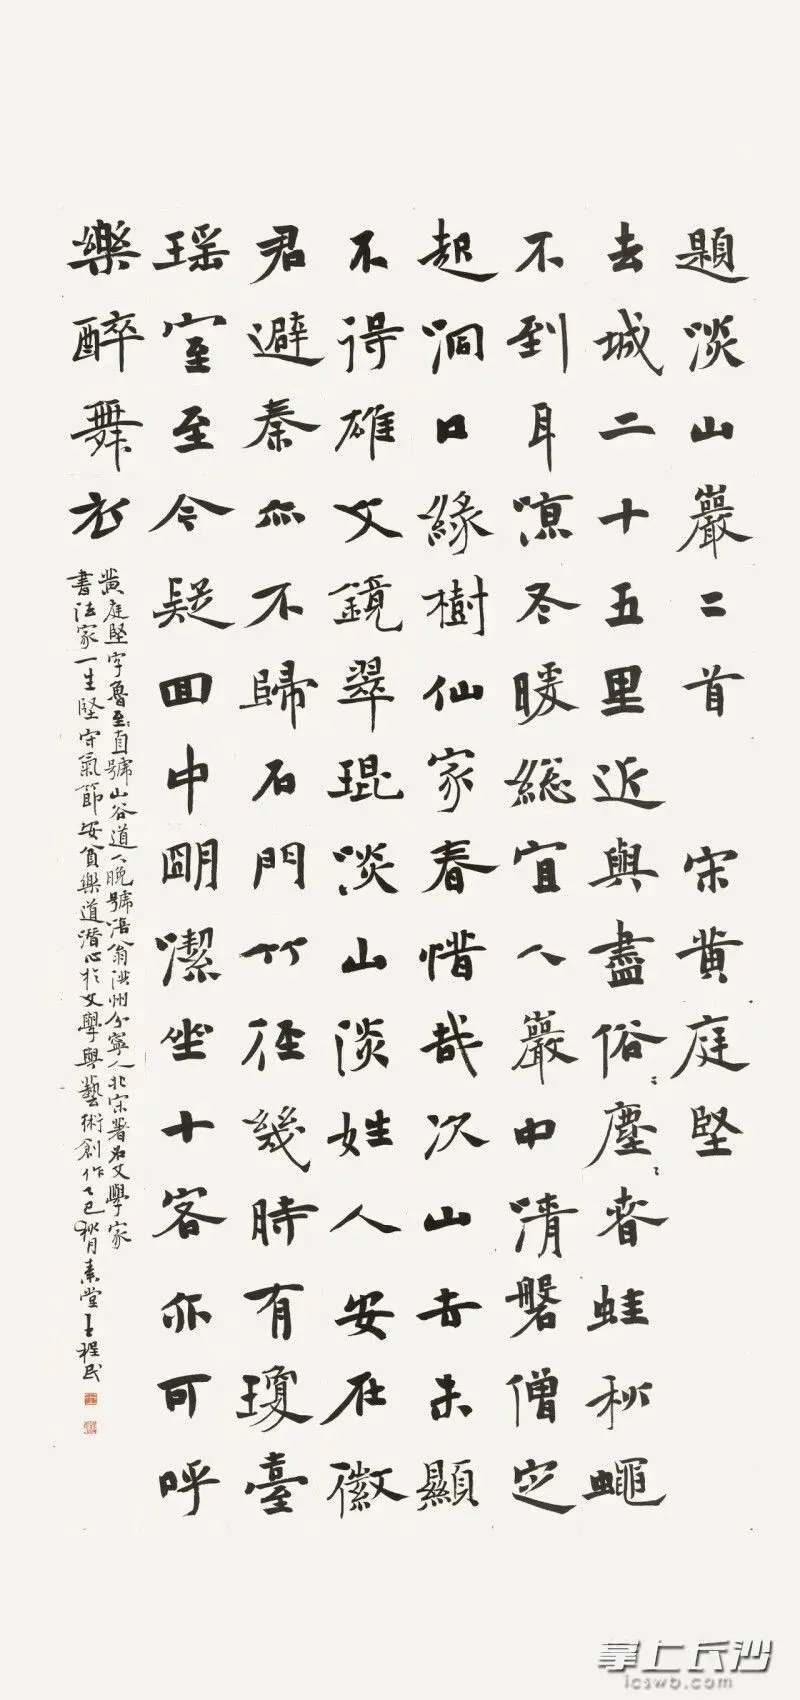 題淡山巖二首 宋黄庭堅
去城二十五里近與盡俗塵春蛙秋蠅
不到耳凉冬暖総宜人巖中清磬僧定
起洞口緣樹仙家春惜哉次山去未顯
不得雄文鏡翠琨淡山淡姓人安在徽
君避秦亦不歸石門竹徑幾時有瓊臺
瑶室至今疑回中明潔坐十客亦可呼
樂醉舞衣
黄庭堅字魯至直號山谷道人晚號涪翁洪州分寧人北宋著名文學家
書法家一生堅守氣節安貧樂道潛心於文學與藝術創作乙巳秋月素堂王程民
掌上长沙
icswb.com